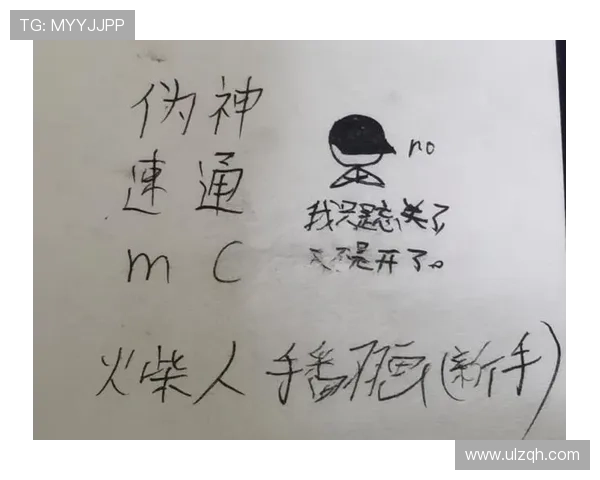 TG: MYYJJPP
伪神
速通
m C
no
我只是忘关了
又不是开了。
火柴人手番画(新手)
www.ulzqh.com